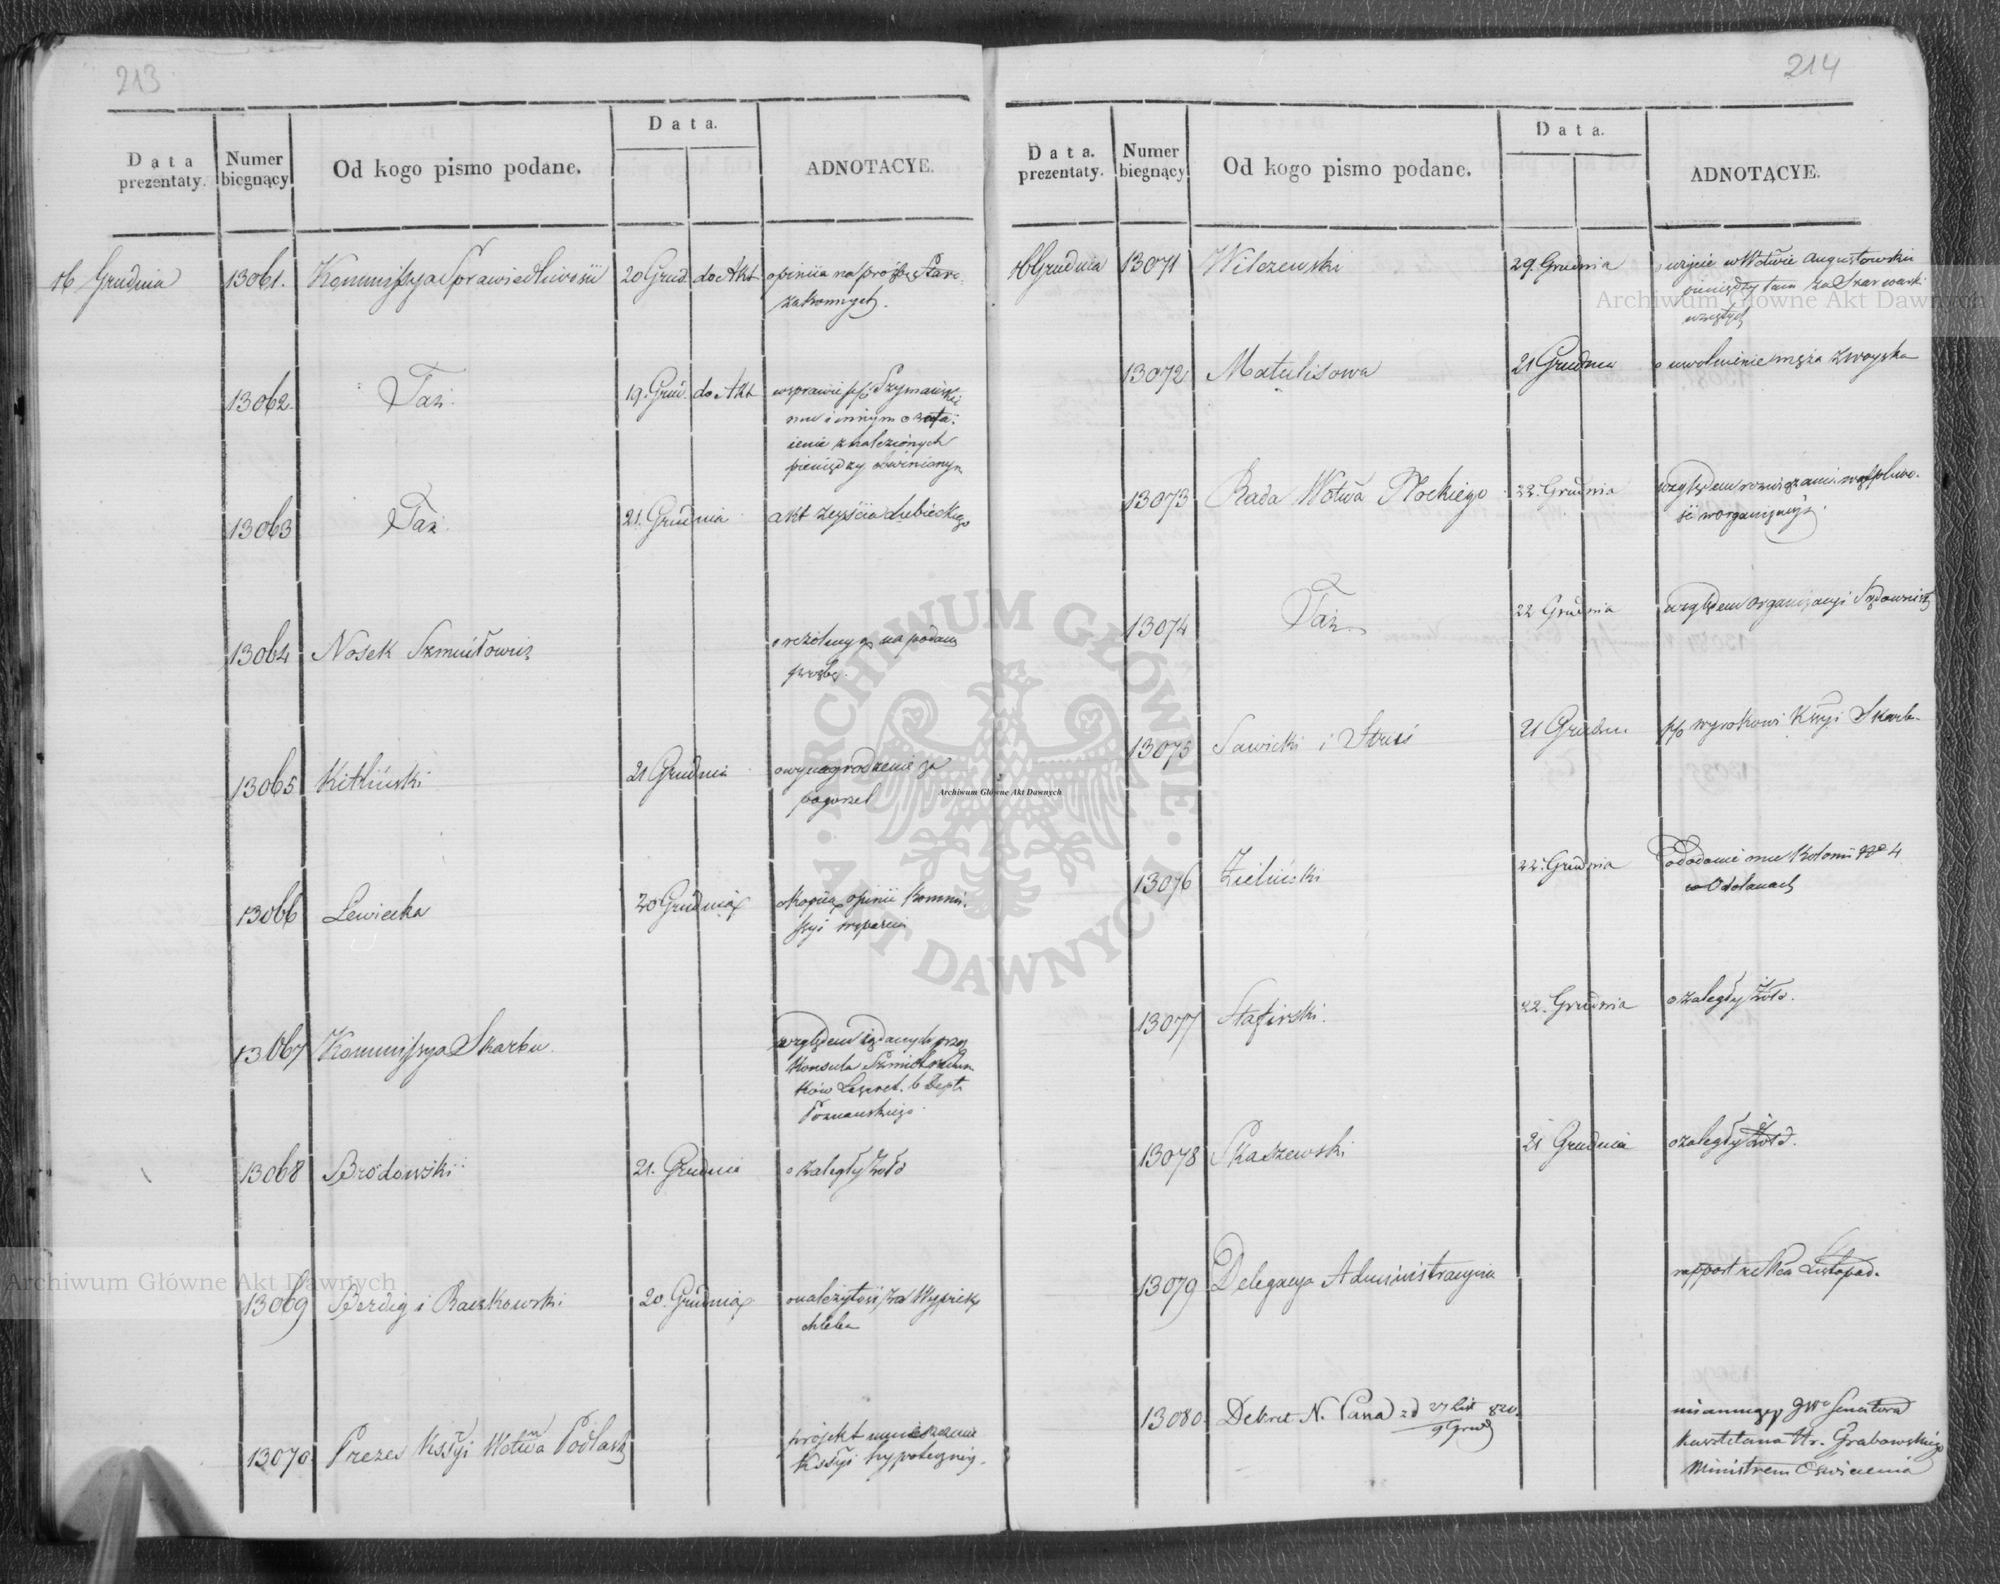 213
Data prezentaty.
Numer biegnący
Od kogo pismo podane.
Data.
ADNOTACYE.
16 Grudnia
13061.
Kommissya Sprawiedliwości
20 Grud.
do Akt
opiniia na prośbę Staro-
zakonnych.
13062.
Taż.
19. Grud.
do Akt
w sprawie
Szymańskie
mu i innym o zata-
ienie znalezionych
pieniędzy obwinionym
13063
Taż.
21. Grudnia
akt zeyścia
13064
Nosek Szmulowicz
o rezolucyą na podaną
prośbę.
13065
Kitliński
21 Grudnia
o wynagrodzenie za
pogorzel
13066
Lewicka
20 Grudnia
o kopiią opinii Kommis-
syi wsparcia
13067
Kommissya Skarbu.
względem żądanych przez
Konsula Szmidt rachun-
ków Lazaret. b. Dept.
Poznańskiego.
13068
Brodowski
21. Grudnia
o zaległy żołd
13069
Berdig i Raczkowski
20. Grudnia
o należytość za Wypiek
chleba
13070.
Prezes Kssyi Wotwa Podlask
projekt umieszczenia
Kssyi hypoteczney.
214
Data. prezentaty.
Numer biegnący
Od kogo pismo podane.
Data.
ADNOTACYE.
16 Grudnia
13071
Wilczewski
29. Grudnia
o użycie w Wotwie Augustowskim
pieniędzy tam za Szarwarki
wziętych
13072
Matulisowa
21 Grudnia
o uwolnienie męża z woyska
13073
Rada Wotwa Płockiego
22. Grudnia
względem rozwiązania wątpliwo-
ści w organizacyi.
13074
Taż.
22 Grudnia
względem organizacyi Sądownictw
13075
Sawicki i Struś
21 Grudn.
p/o wyrokowi Kssyi Skarb.
13076
Zieliński
22. Grudnia
o dodanie mu Kolonii No 4
w Odolanach
13077
Stafirski.
22. Grudnia
o zaległy żołd.
13078
Skaszewski
21 Grudnia
o zaległy żołd.
13079
Delegacya Administracyina
rapport za Mca Listopad.
13080.
Dekret N. Pana z d 27 List 820.
9 Grud
mianuiący JWo Senatora
Kasztelana Hr. Grabowskiego
Ministrem Oświecenia
Archiwum Główne Akt Dawnych
Archiwum Główne Akt Dawnych
Archiwum Główne Akt Dawnych
ARCHIWUM GŁÓWNE AKT DAWNYCH